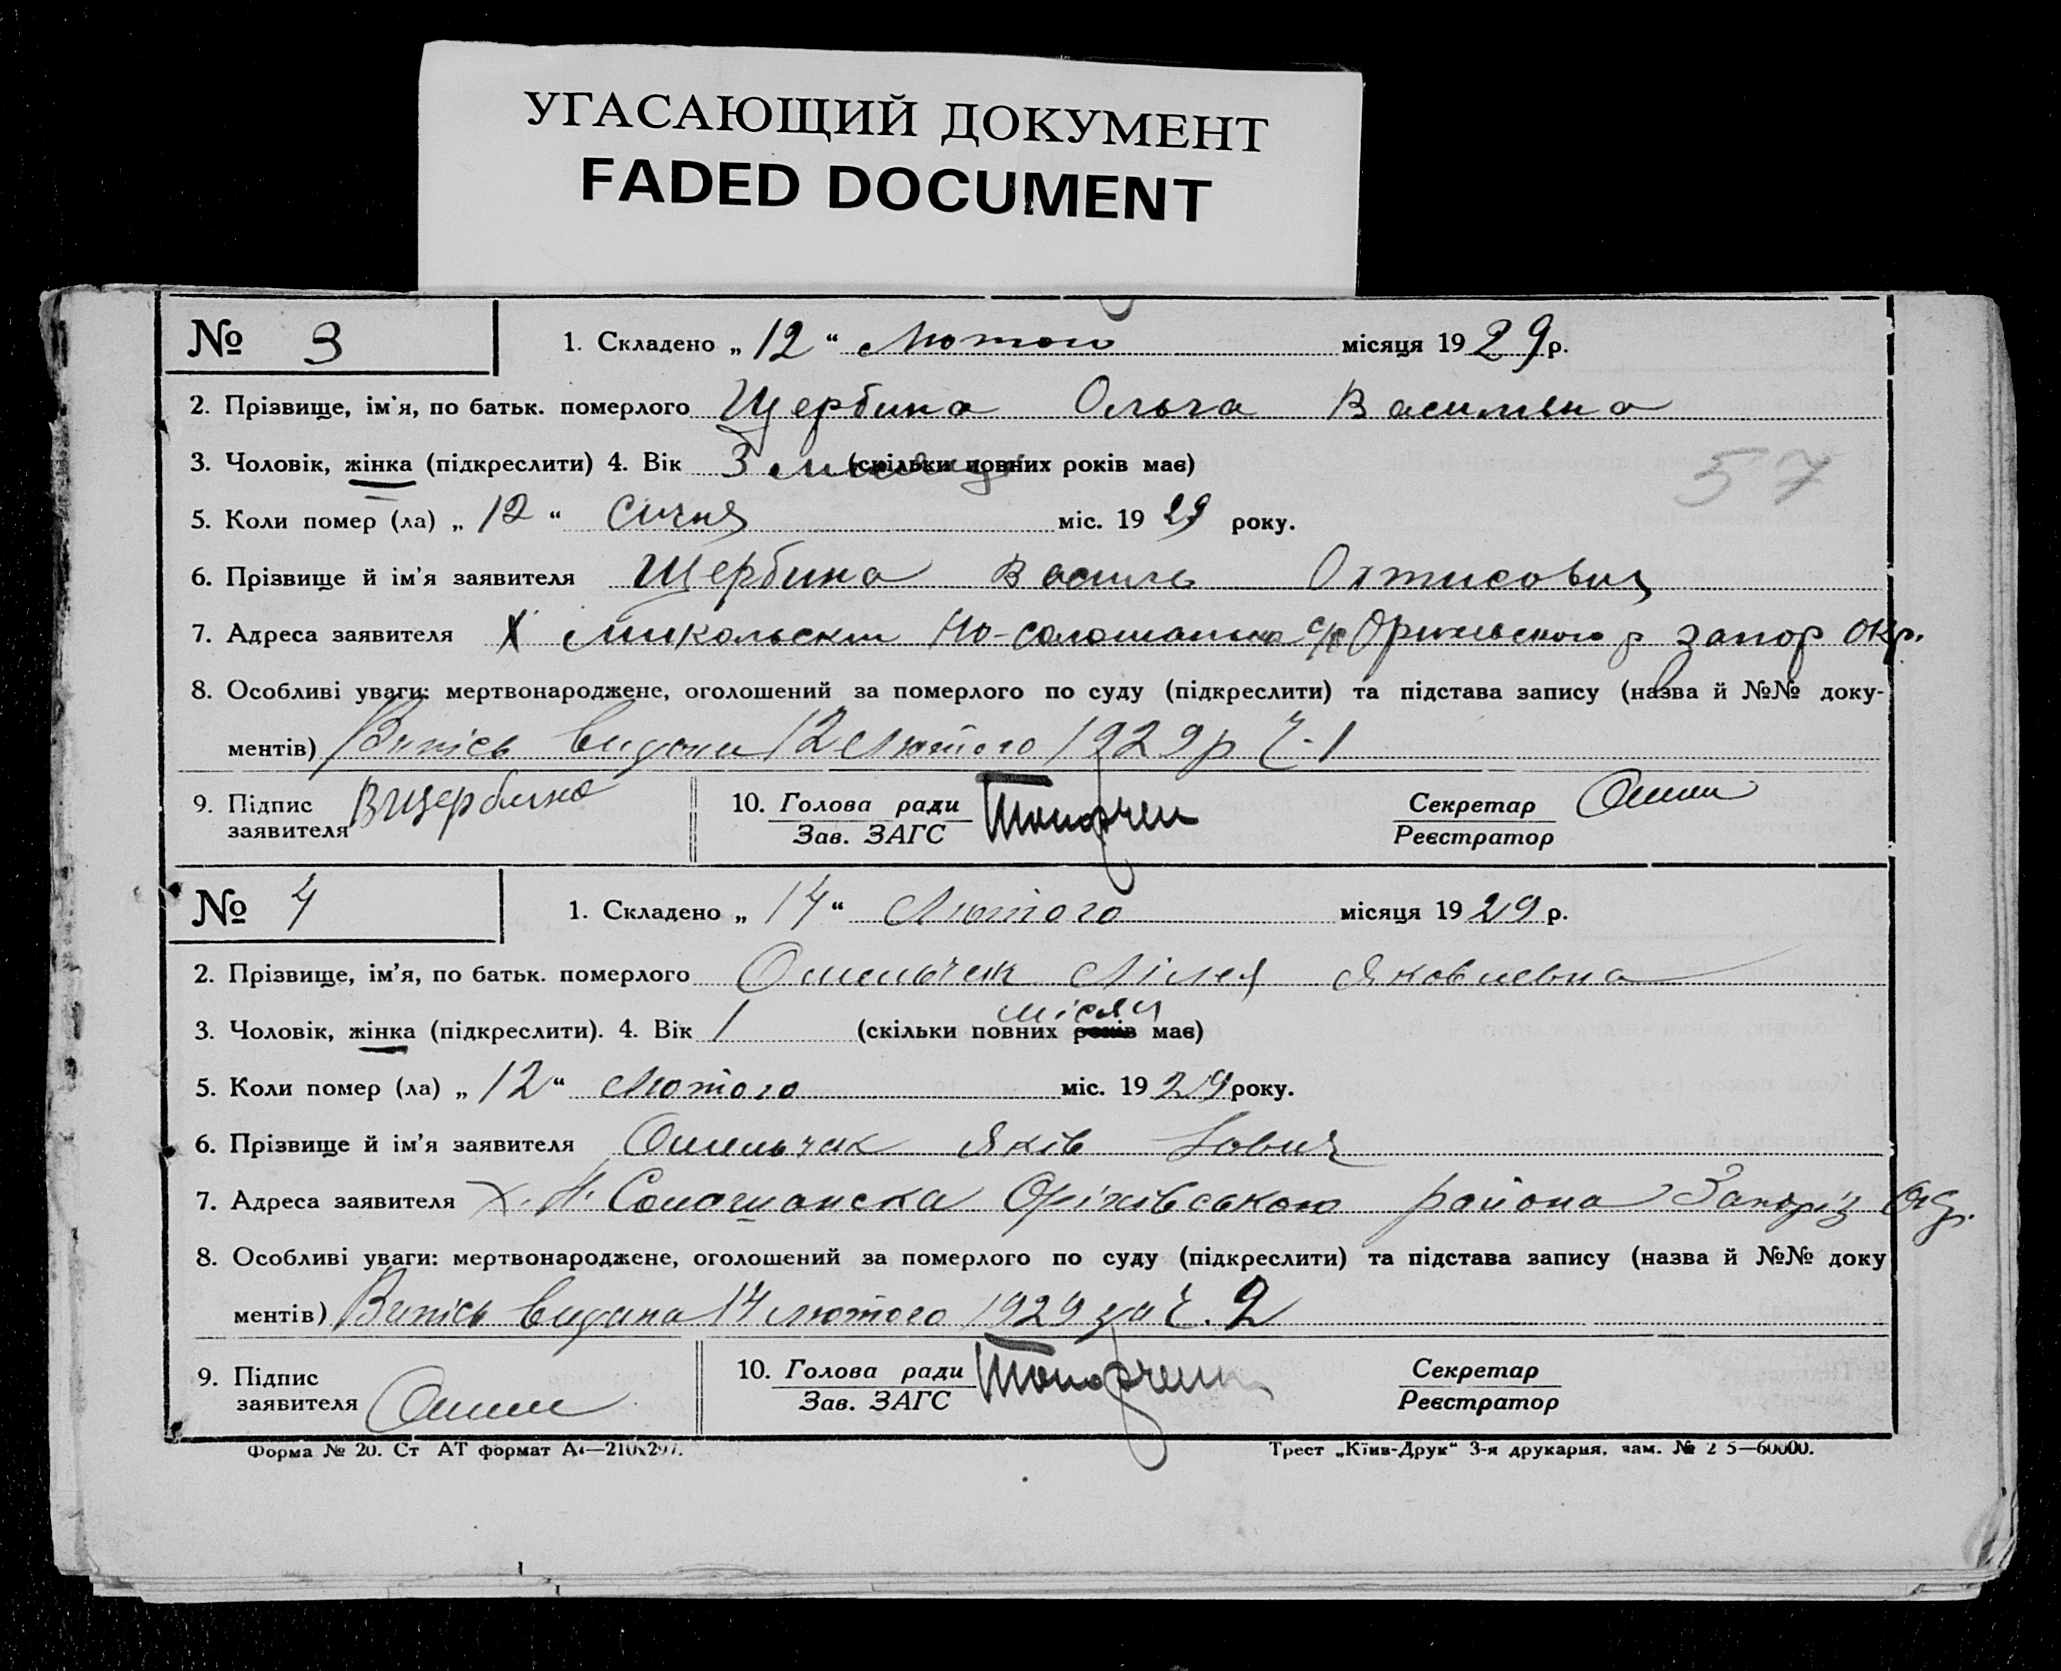 УГАСАЮЩИЙ ДОКУМЕНТ
FADED DOCUMENT
№ 3
1. Складено „ 12 “ Лютого місяця 1929 р.
2. Прізвище, ім'я, по батьк. померлого Щербина Ольга Василівна
57
3. Чоловік, жінка (підкреслити) 4. Вік 3 місяці (скільки повних років має)
5. Коли помер (ла) „ 12 “ Січня міс. 1929 року.
6. Прізвище й ім'я заявителя Щербина Василь
7. Адреса заявителя Х Микольский Но-Солошанська с/р Орихівського р Запор Окр.
8. Особливі уваги: мертвонароджене, оголошений за померлого по суду (підкреслити) та підстава запису (назва й №№ доку-
ментів) Випісь видана 12 Лютого 1929 р Ч. 1
9. Підпис
заявителя ВЩербина
10. Голова ради
Зав. ЗАГС
Секретар
Реєстратор
№ 4
1. Складено „ 14 “ Лютого місяця 1929 р.
2. Прізвище, ім'я, по батьк. померлого Омельчак Лілея Яковлевна
3. Чоловік, жінка (підкреслити). 4. Вік 1 (скільки повних років має)
5. Коли помер (ла) „ 12 “ Лютого міс. 1929 року.
6. Прізвище й ім'я заявителя Омельчак Яків Іович
7. Адреса заявителя х. Н. Солошанска Оріхівського района Запоріз Окр.
8. Особливі уваги: мертвонароджене, оголошений за померлого по суду (підкреслити) та підстава запису (назва й №№ доку
ментів) Випісь видана 14 лютого 1929 за Ч. 2
9. Підпис
заявителя
10. Голова ради
Зав. ЗАГС
Секретар
Реєстратор
Форма № 20. Ст АТ формат А4—210х297.
Трест „Київ-Друк“ 3-я друкарня, зам. № 2 5—60000.